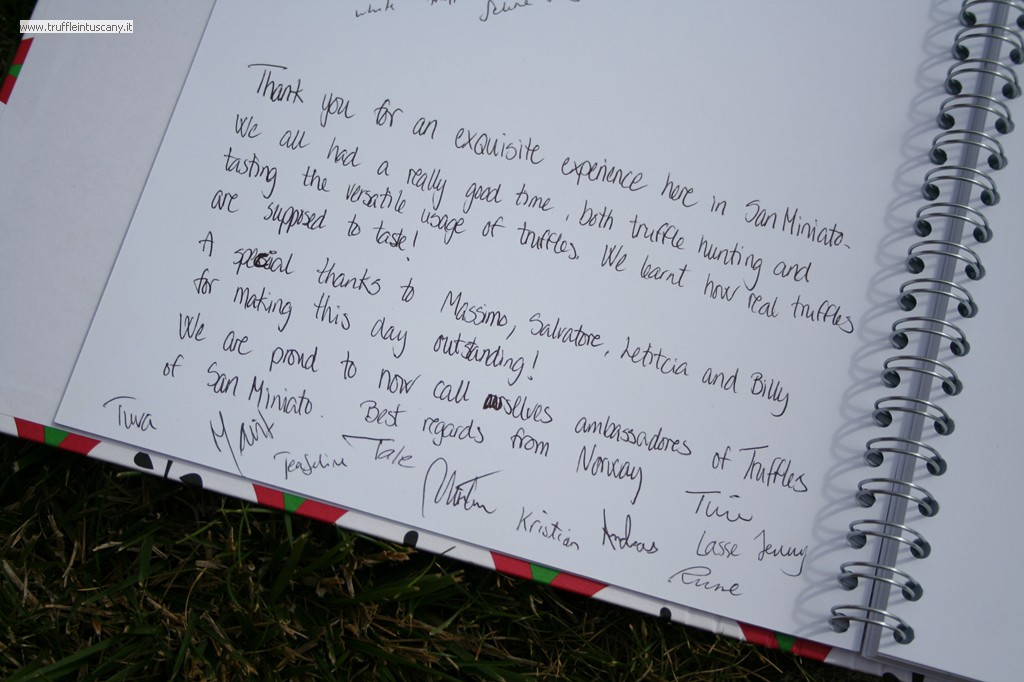 www.truffleintuscany.it
Thank you for an exquisite experience here in San Miniato.
We all had a really good time, both truffle hunting and
tasting the versatile usage of truffles. We learnt how real truffles
are supposed to taste!
A special thanks to Massimo, Salvatore, Letitcia and Billy
for making this day outstanding!
We are proud to now call ourselves ambassadores of Truffles
of San Miniato. Best regards from Norway
Tuva Marit Tale Tine
Kristian Andreas Lasse Jenny
Rune